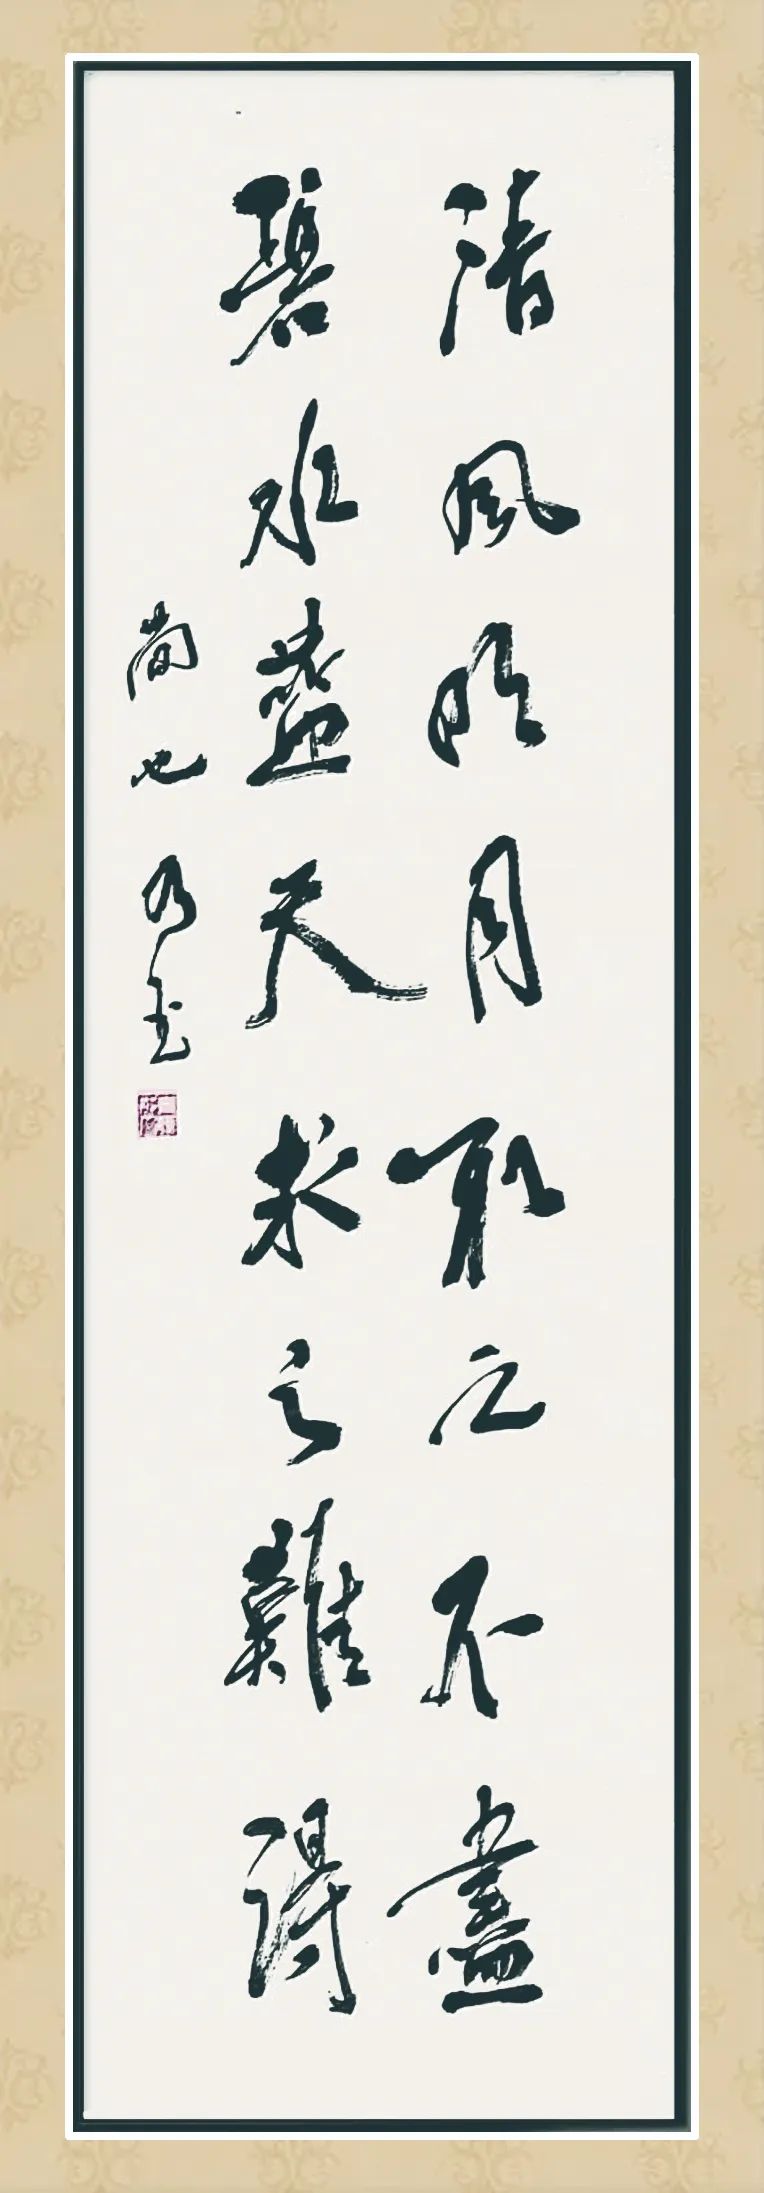 清风明月取之不盡
碧水蓝天求之難得
尚也